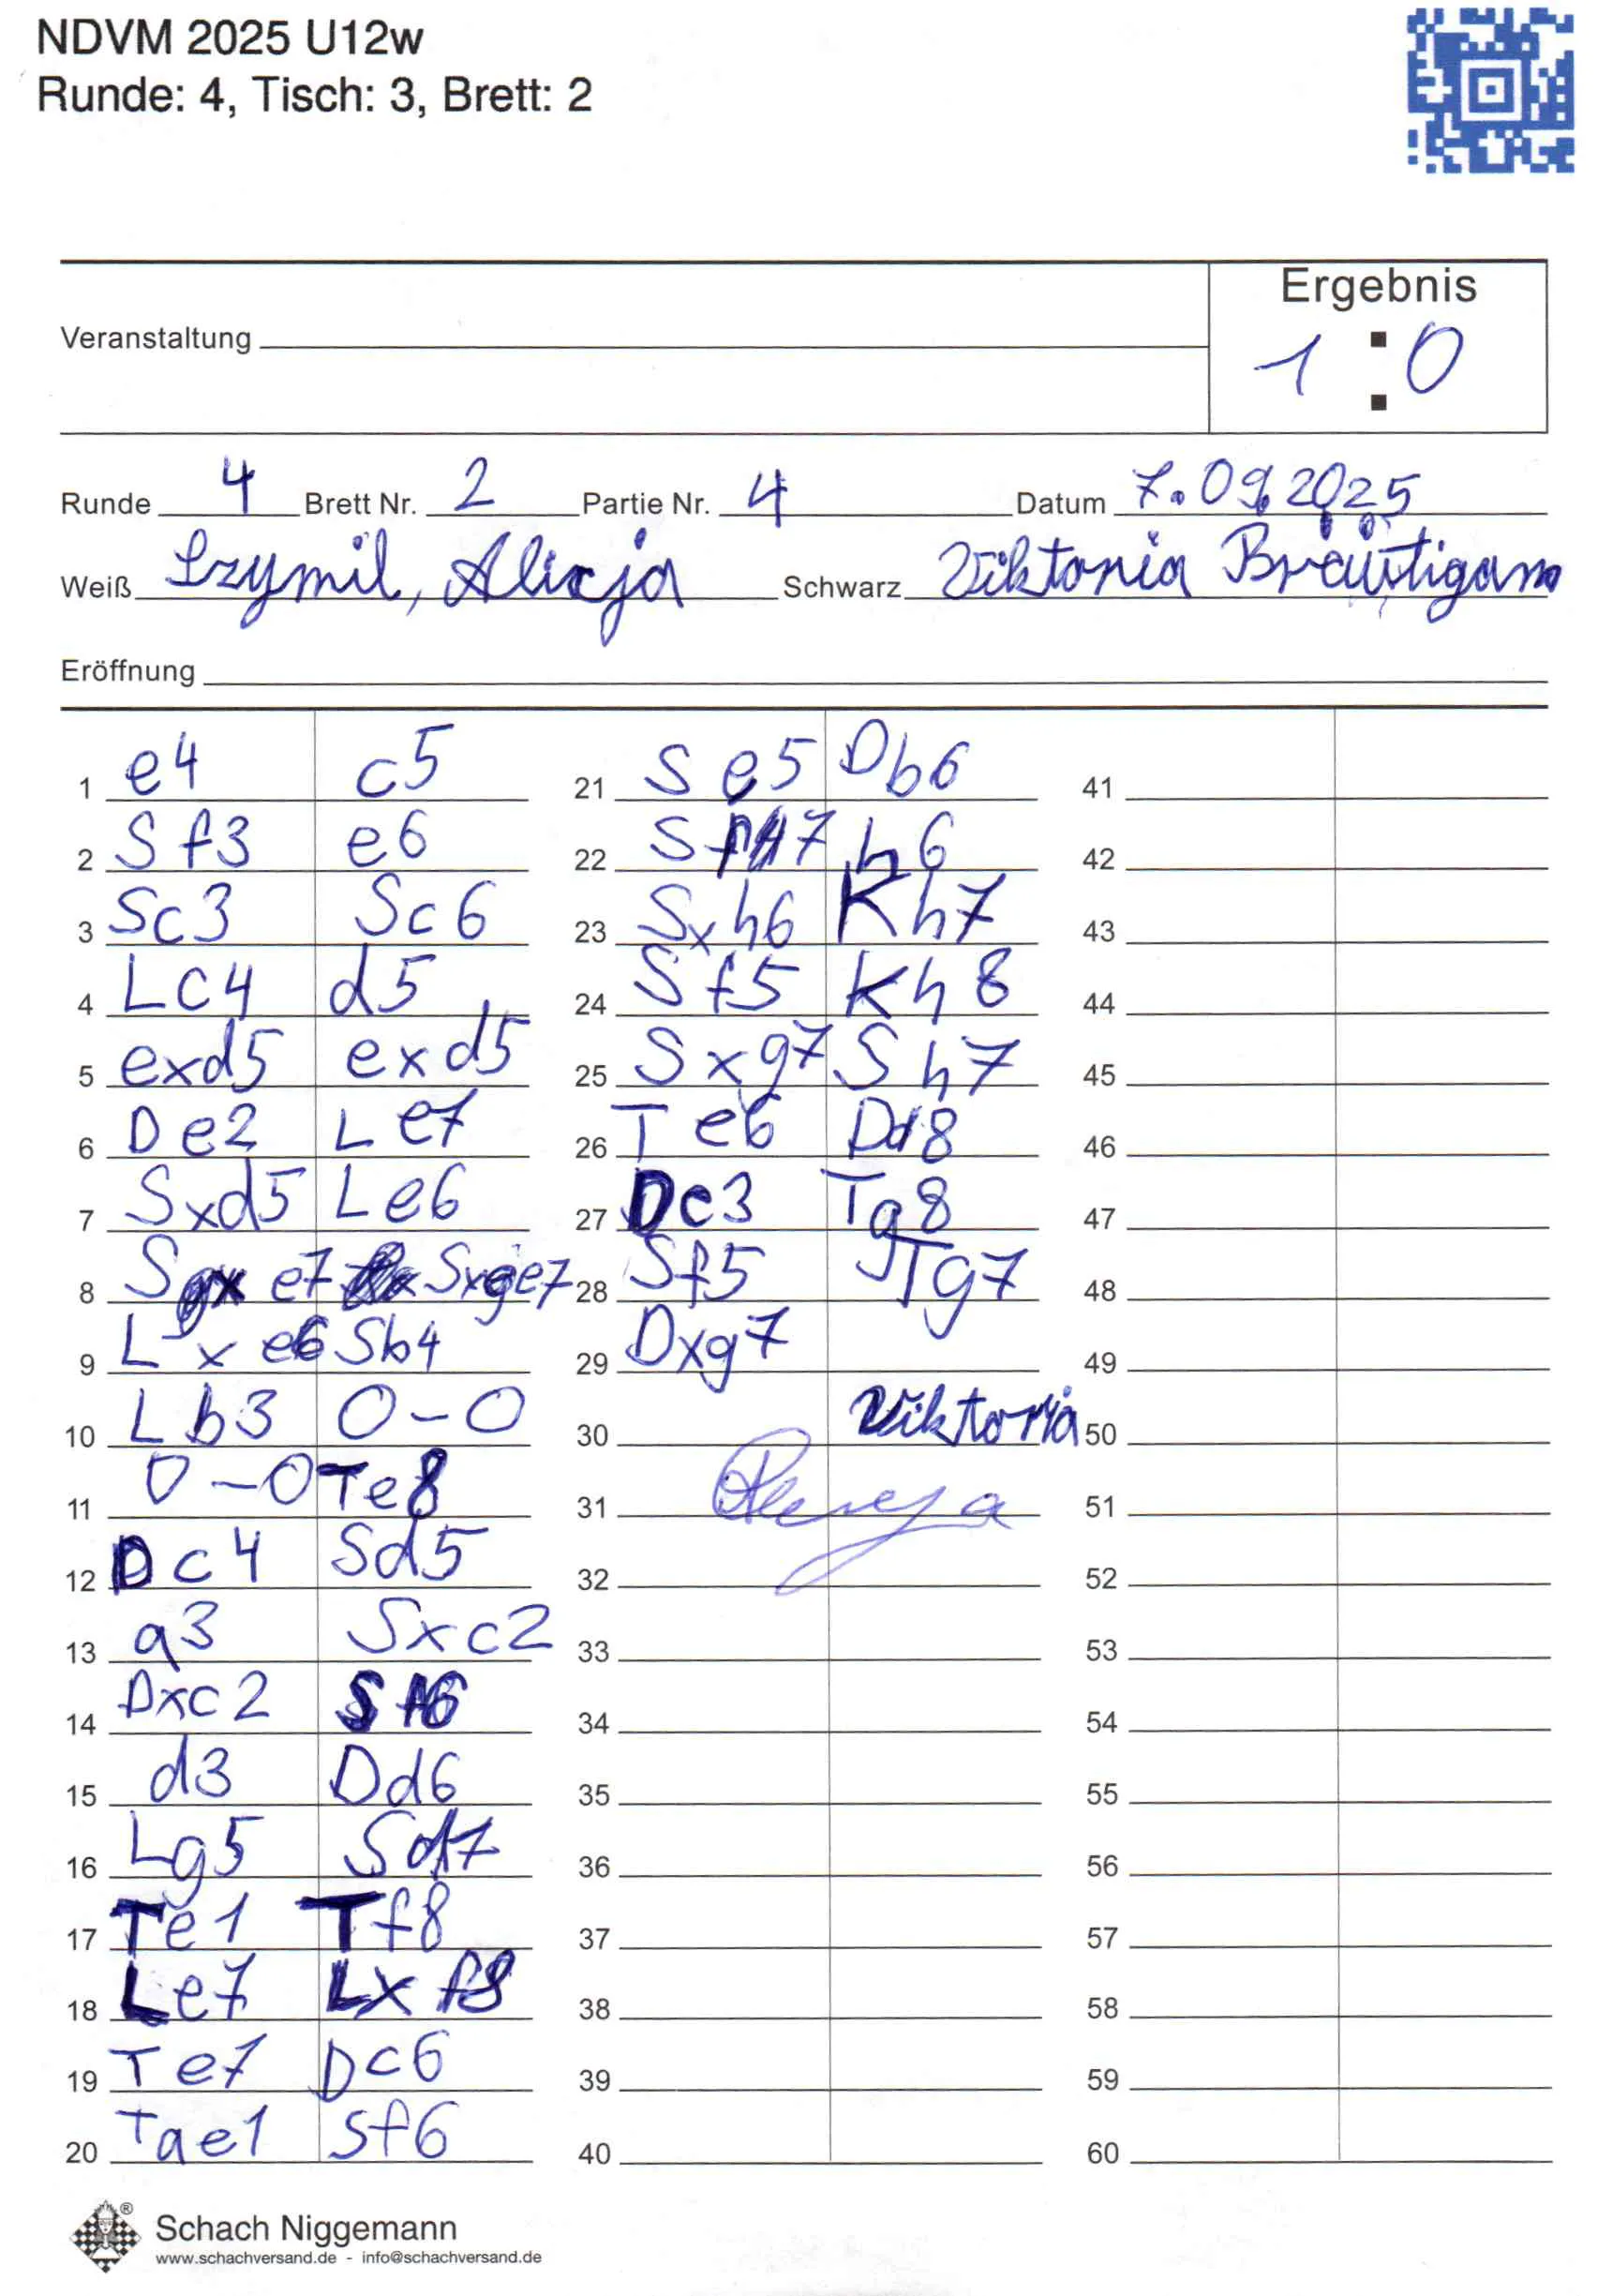 NDVM 2025 U12w
Runde: 4, Tisch: 3, Brett: 2
Ergebnis
Veranstaltung
1 : 0
Runde 4 Brett Nr. 2 Partie Nr. 4 Datum 7.09.2025
Weiß Szymil, Alicja Schwarz Viktoria Bräutigam
Eröffnung
1 e4 c5
2 Sf3 e6
3 Sc3 Sc6
4 Lc4 d5
5 exd5 exd5
6 De2 Le7
7 Sxd5 Le6
8 S e7 Sxge7
9 Lxe6 Sb4
10 Lb3 0-0
11 0-0 Te8
12 Dc4 Sd5
13 a3 Sxc2
14 Dxc2 Sf6
15 d3 Dd6
16 Lg5 Sd7
17 Te1 Tf8
18 Le7 Lxf8
19 Te7 Dc6
20 Tae1 Sf6
21 Se5 Db6
22 Sf7 h6
23 Sxh6 Kh7
24 Sf5 Kh8
25 Sxg7 Sh7
26 Te6 Dd8
27 Dc3 Tg8
28 Sf5 Tg7
29 Dxg7
30 Viktoria
31
32
33
34
35
36
37
38
39
40
41
42
43
44
45
46
47
48
49
50
51
52
53
54
55
56
57
58
59
60
Schach Niggemann
www.schachversand.de - info@schachversand.de